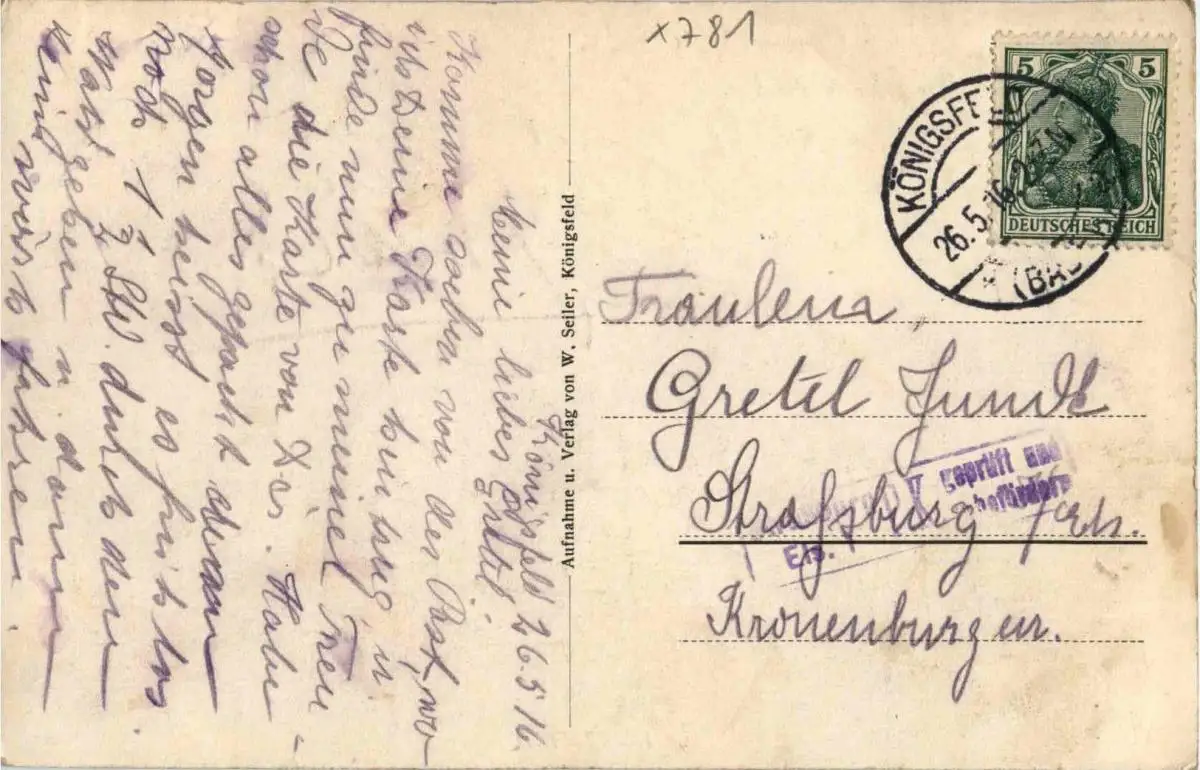 x781
5 5
DEUTSCHES REICH
KÖNIGSFELD
26.5.16
(BAD
Königsfeld 26.5.16.
Meine liebes Gretel!
Komme soeben von der Post, wo
ich Deine Karte hintrug u.
finde nun zu meiner Freu-
de die Karte von Dir. Habe
schon alles gepackt denn
Morgen heisst es früh los
noch 1 ½ Std. durch den
Wald gehen u dann
wirst fahren.
Aufnahme u. Verlag von W. Seiler, Königsfeld
Fräulein,
Gretel Jundt
Straßburg / Els.
Kronenburg
geprüft und
Els. befördern